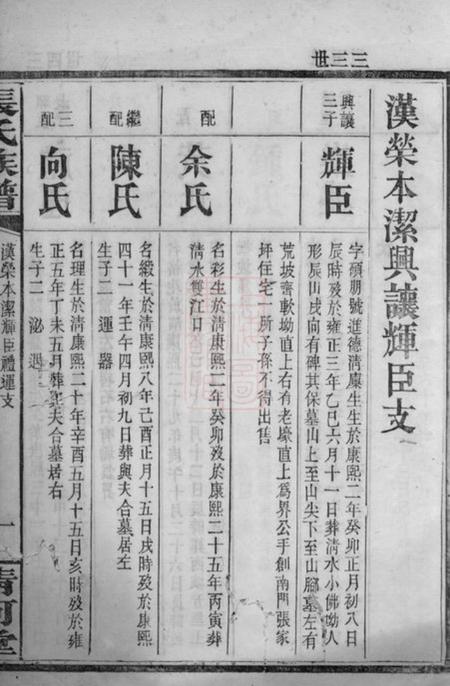 三三世
漢榮本潔興讓輝臣支
興讓
三子
輝臣
字頌朋號進德清廩生生於康熙二年癸卯正月初八日
辰時歿於雍正三年乙巳六月十一日葬清水小佛坳人
形辰山戌向有碑其保墓山上至山尖下至山腳墓左有
荒坡齊軟坳直上右有老壕直上為界公手創南門張家
坪住宅一所子孫不得出售
配
余氏
名彩生於清康熙二年癸卯歿於康熙二十五年丙寅葬
清水雙江口
繼配
陳氏
名緞生於清康熙八年己酉正月十五日戌時歿於康熙
四十一年壬午四月初九日葬與夫合墓居左
生子二 運 器
三配
向氏
名理生於清康熙二十年辛酉五月十五日亥時歿於雍
正五年丁未五月葬與夫合墓居右
生子二 泌 遇
張氏族譜
漢榮本潔輝臣禮運支
一
清河堂